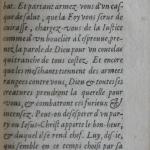 bat. Et partant armez vous d'un cas
que de salut, que la Foy vous serue de
cuirasse, chargez vous de la Iustice
comme d'un bouclier al'espreuue, pre-
nez la parole de Dieu pour un coutelas
qui tranche de tous costez. Et encore
que les meschans tiennent des armes
rangees contre vous, Dieu & toutes ses
creatures prendront la querelle pour
vous, & combattront ces furieux &
insensez. Peut-on desesperer d'un par-
ty ou Iesus-Christ apporte le bon-heur,
& duquel il se rend chef. Luy, dis-ie,
qui semble en ce temps choisi par sa